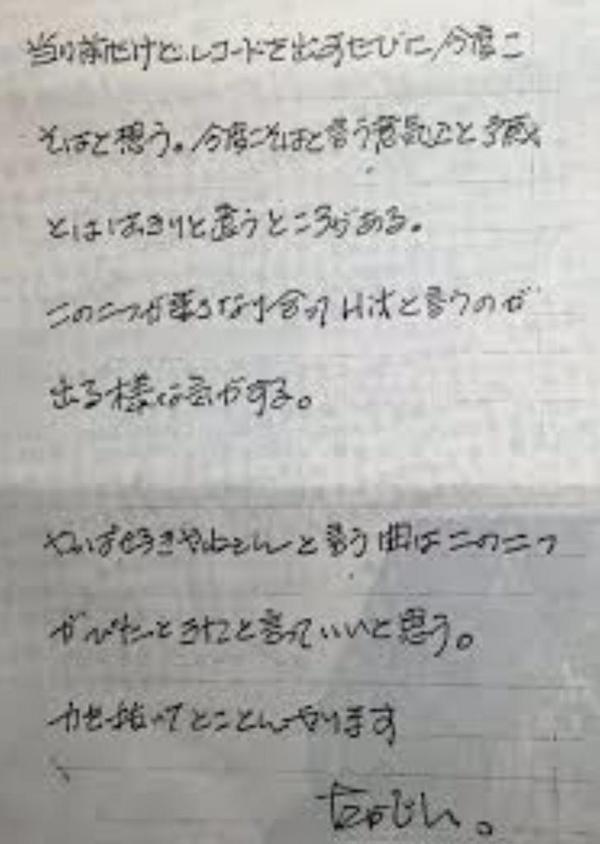 当り前だけど、レコードを出すたびに今度こ
そはと想う。今度こそはと言う意気込と予感
とははっきりと違うところがある。
この二つが重さなり合ってHitと言うのが
出る様な気がする。
やっぱ好きやねんと言う曲はこの二つ
がぴたっときたと言っていいと思う。
力を抜いてとことんやります
たかじん。